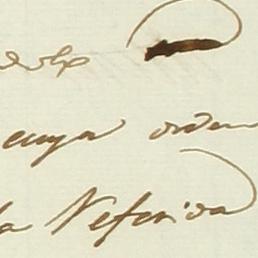 cuya orden
la Referida